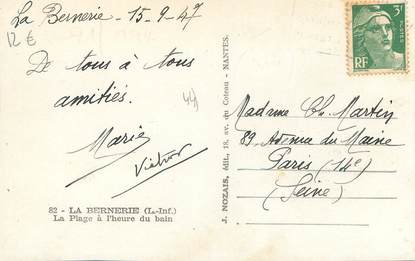 La Bernerie - 15-9-47
12 €
De tous à tous
amitiés.
44
Marie
Victor
82 - LA BERNERIE (L.-Inf.)
La Plage à l'heure du bain
J. NOZAIS, édit., 18, av. du Coteau - NANTES.
3F
POSTES
RF
Madame Ch. Martin
89 Avenue du Maine
Paris (14e)
(Seine)